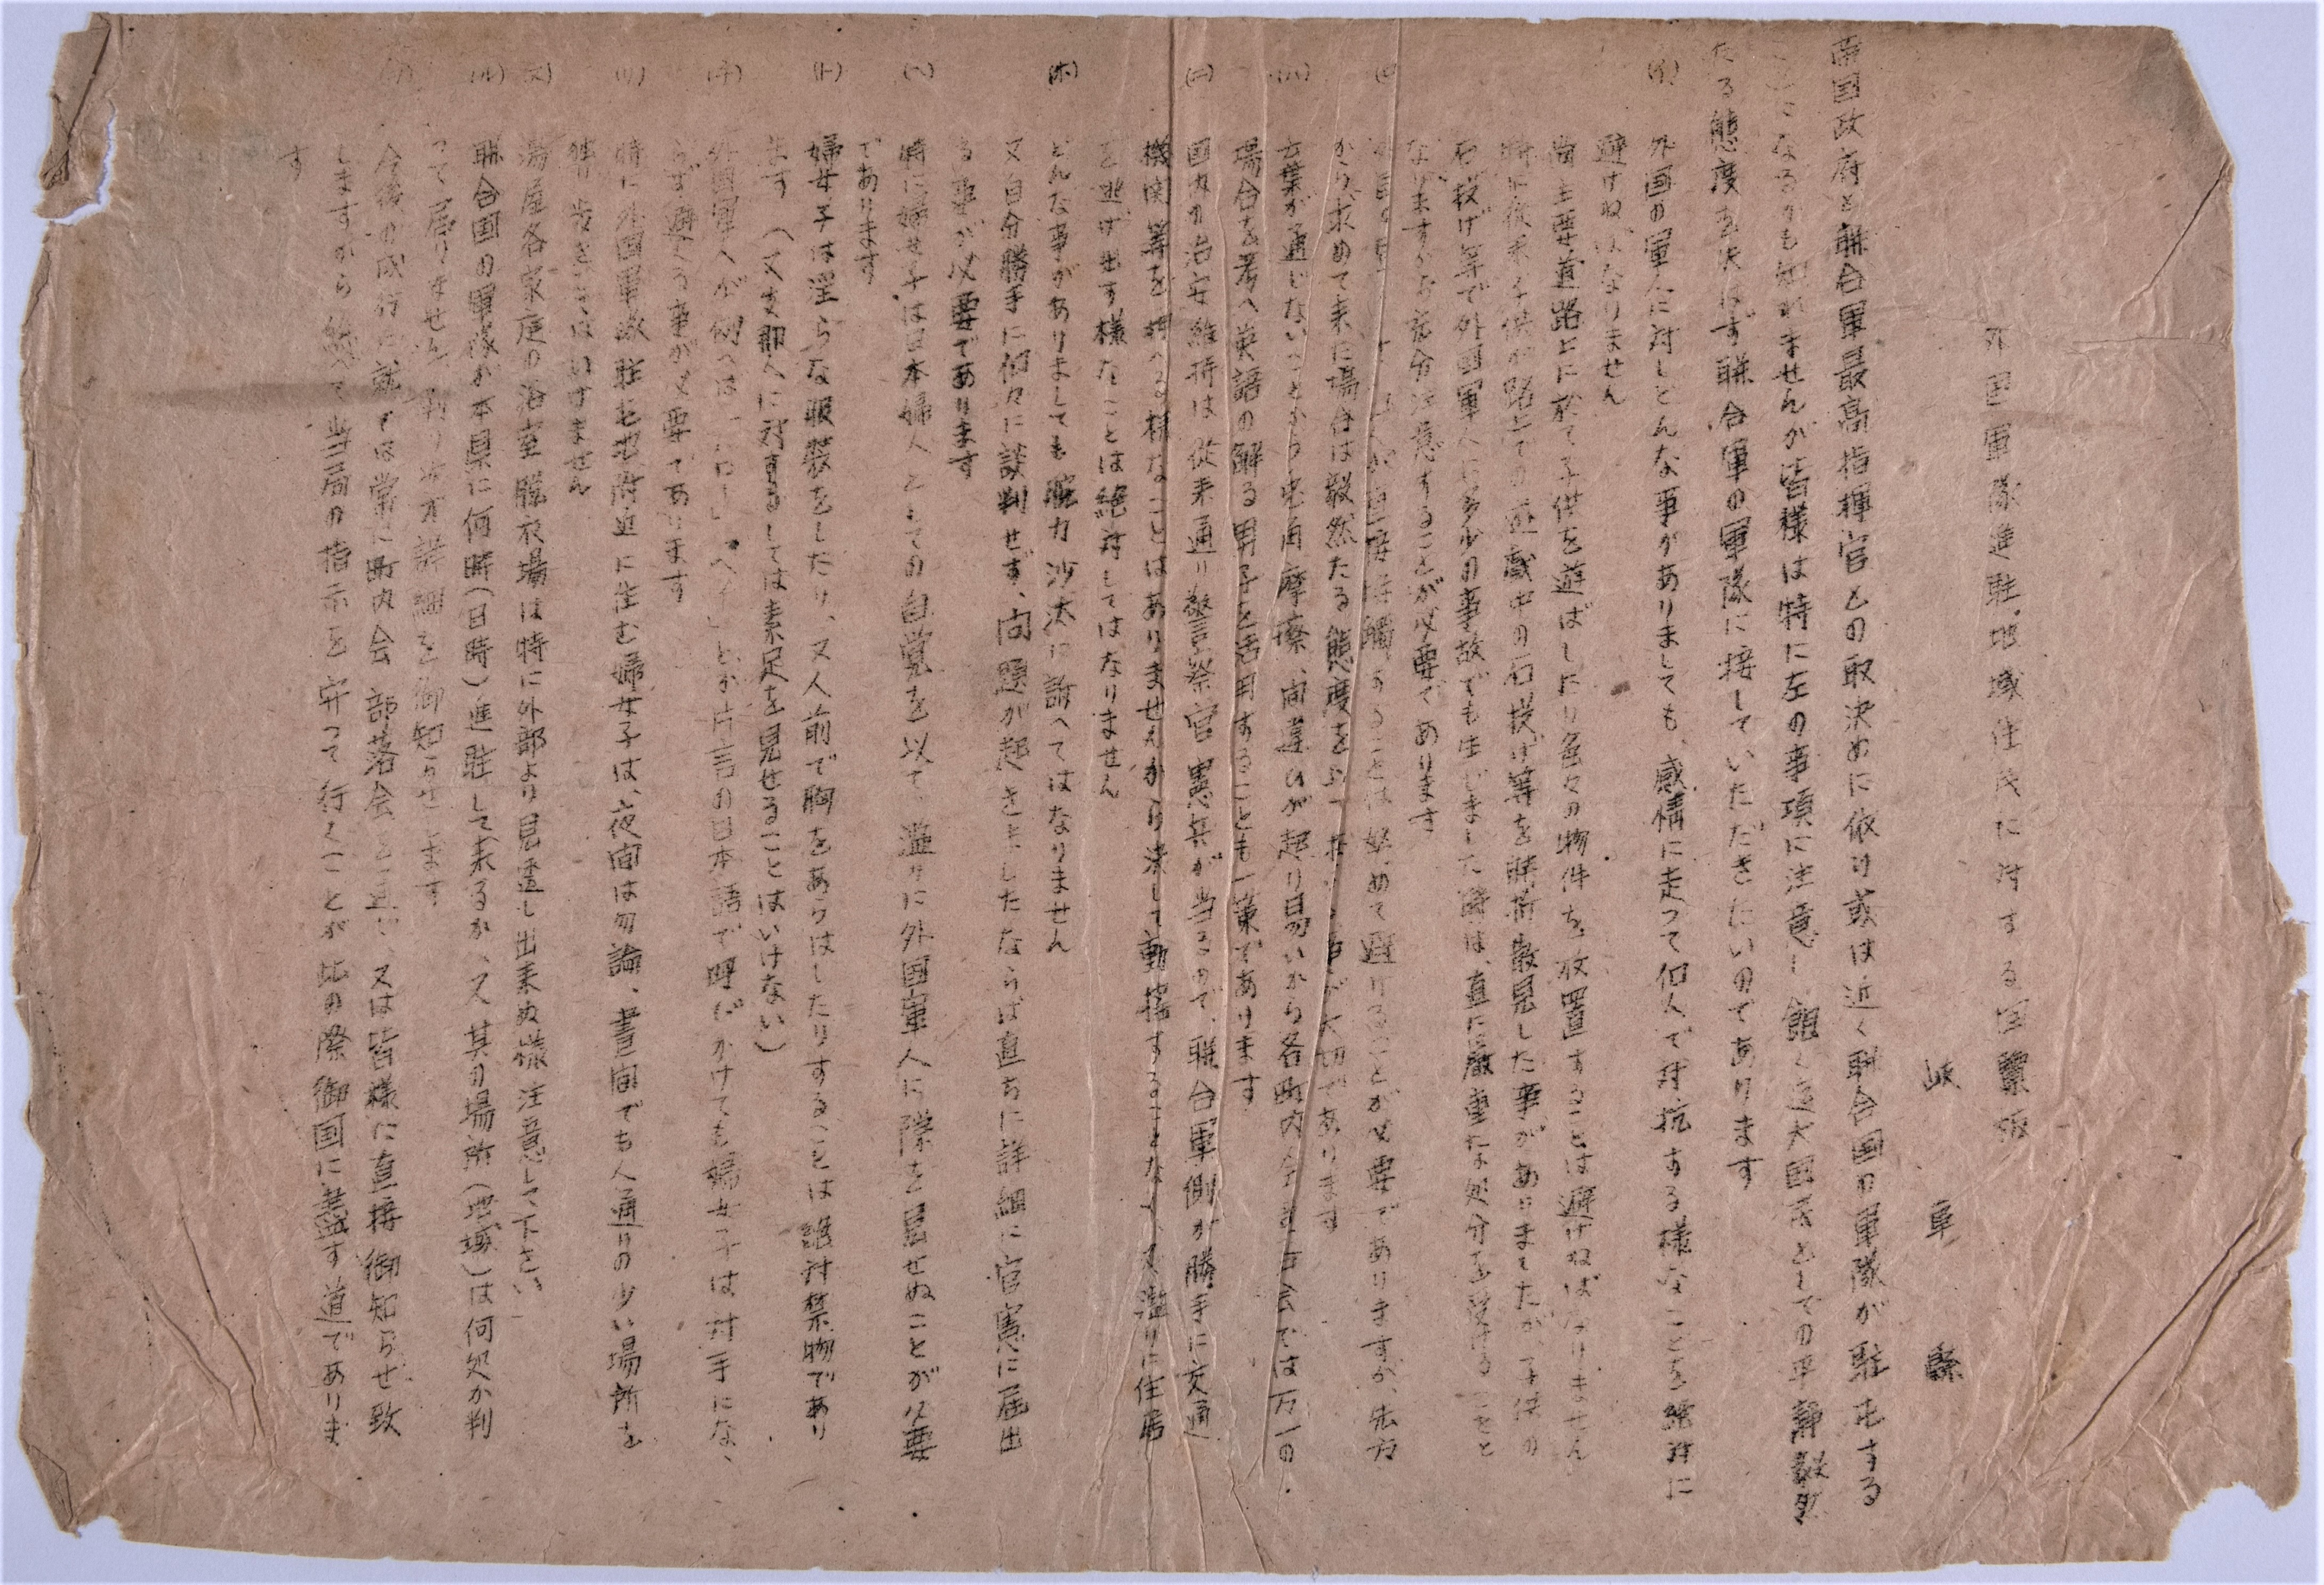 外国軍隊進駐地域住民に対する回覧板
岐阜県
帝国政府と聯合軍最高指揮官との取決めに依り或は近く聯合国の軍隊が駐屯する
ことになるかも知れませんが皆様は特に左の事項に注意し飽く迄大国民としての平静毅然
たる態度を失はず聯合軍の軍隊に接していただきたいのであります
(イ) 外国の軍人に対しどんな事がありましても、感情に走って個人で対抗する様なことを絶対に
避けねばなりません
尚主要道路上に於て子供を遊ばしたり色々の物件を放置することは避けねばなりません
特に従来子供が路上での遊戯中の石投げ等を時折散見した事がありましたが、子供の
石投げ等で外国軍人に多少の事故でも生じました際は、直に厳重な処分を受けることと
なりますから充分注意することが必要であります
(ロ) 直接接触することは努めて避けることが必要でありますが、先方
から求めて来た場合は毅然たる態度を以て 事が大切であります
(ハ) 言葉が通じないことから忠 摩擦、間違ひが起り易いから各町内会 では万一の
場合を考へ英語の解る男子を活用することも一策であります
(ニ) 国内の治安維持は従来通り警察官憲兵が当るので、聯合軍側が勝手に交通
機関等を押へる様なことはありませんから決して動揺することなく、又濫りに住居
を逃げ出す様なことは絶対してはなりません
(ホ) どんな事がありましても腕力沙汰に訴へてはなりません
又自分勝手に個々に談判せず、問題が起きましたならば直ちに詳細に官憲に届出
る事が必要であります
(ヘ) 特に婦女子は日本婦人としての自覚を以て、濫りに外国軍人に隙を見せぬことが必要
であります
(ト) 婦女子は淫らな服装をしたり、又人前で胸をあらはしたりすることは絶対禁物であり
ます (又支那人に対するしては素足を見せることはいけない)
(チ) 外国軍人が例へば「ハロー」「ヘイ」とか片言の日本語で呼びかけても婦女子は対手にな、
らず避ける事が必要であります
(リ) 特に外国軍隊駐屯地附近に住む婦女子は、夜間は勿論、昼間でも人通りの少い場所を
独り歩きしてはいけません
(ヌ) 湯屋各家庭の浴室脱衣場は特に外部より見透し出来ぬ様注意して下さい
(ル) 聯合国の軍隊が本県に何時(日時)進駐して来るか、又其の場所(地域)は何処か判
って居りません、判り次第詳細を御知らせします
(ヲ) 今後の成行に就ては常に町内会部落会を通じ、又は皆様に直接御知らせ致
しますから総べて当局の指示を守って行くことが此の際御国に盡す道でありま
す